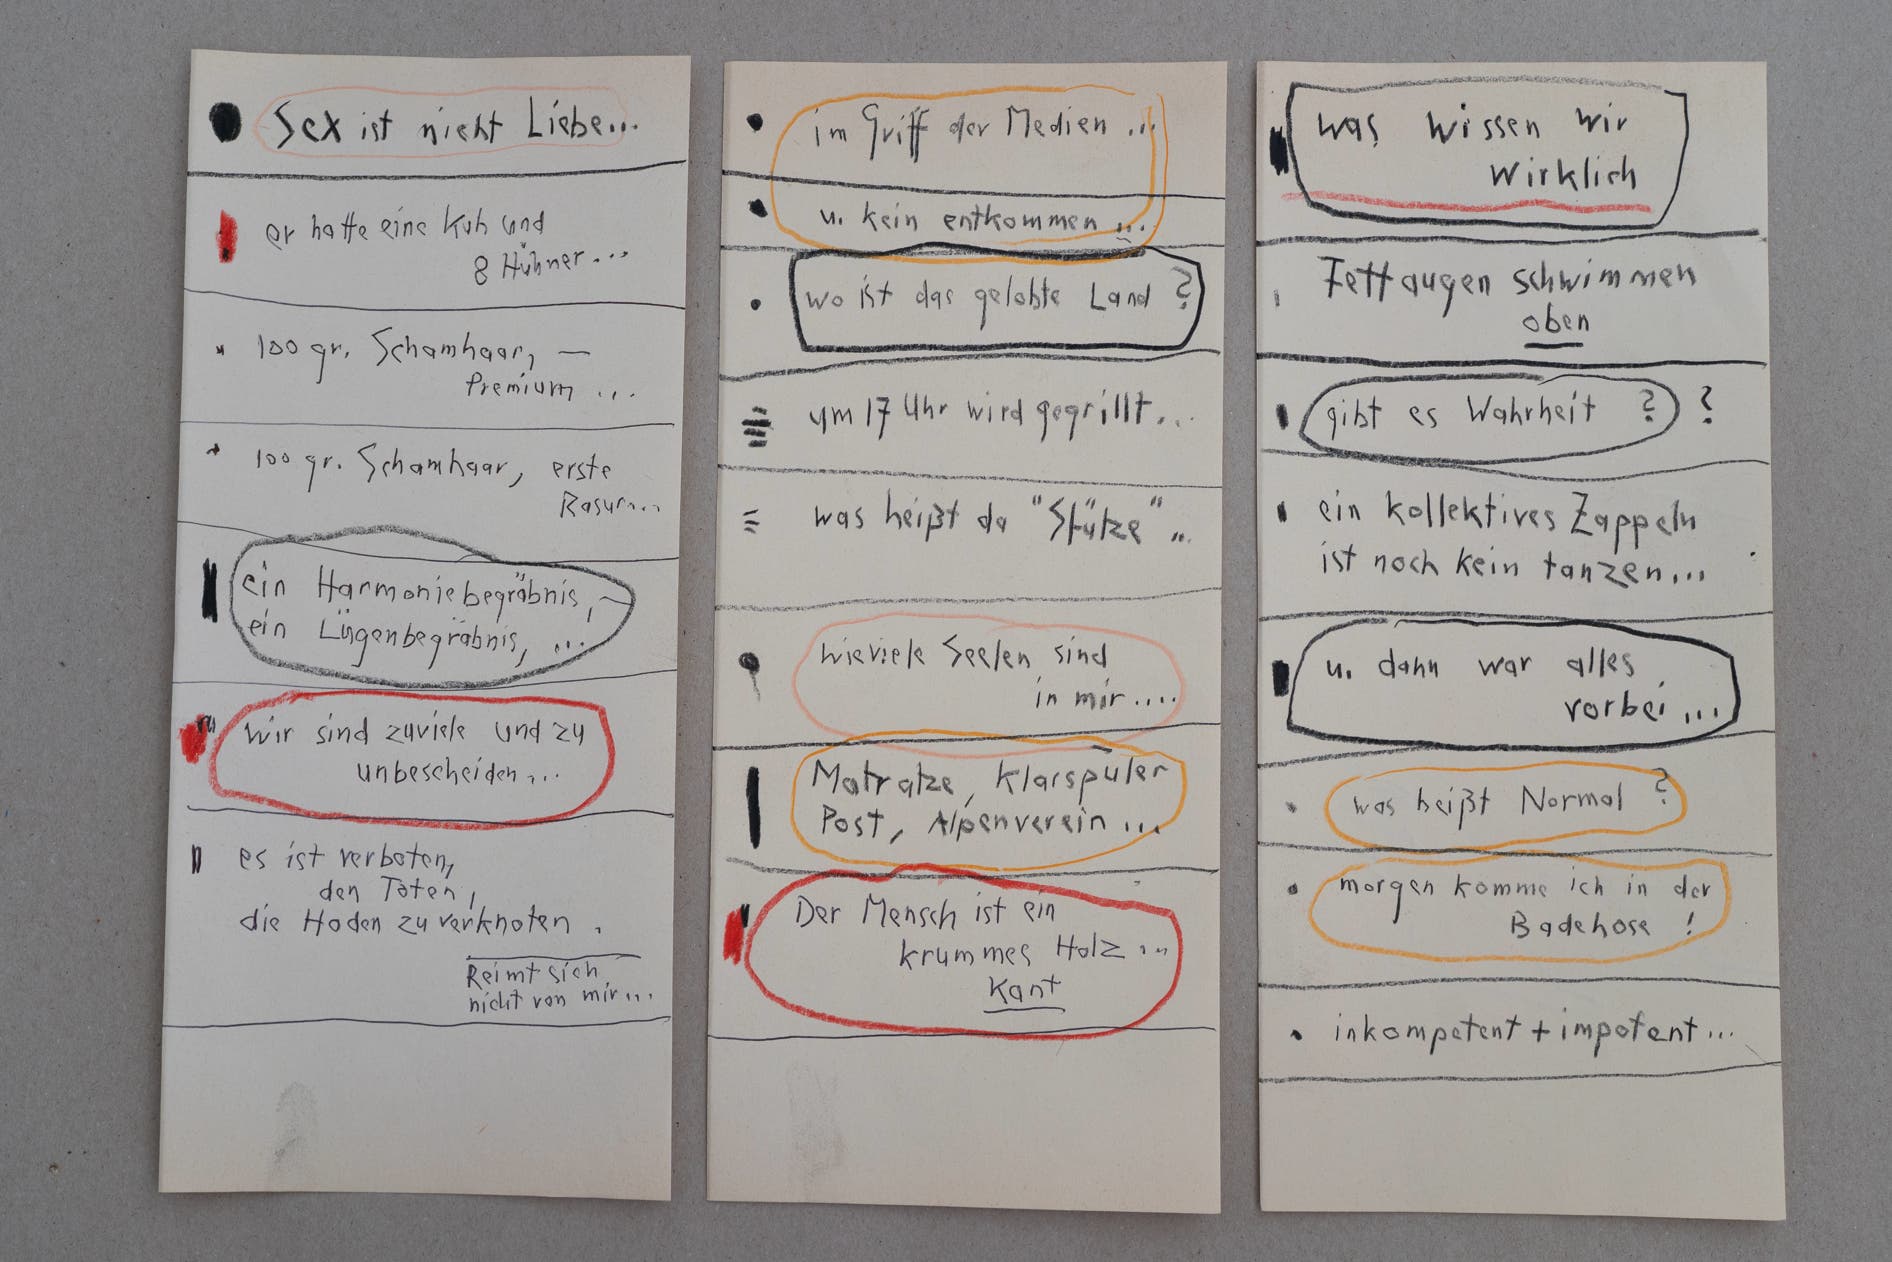 Sex ist nicht Liebe...
er hatte eine Kuh und
8 Hühner...
100 gr. Schamhaar, —
Premium ...
100 gr. Schamhaar, erste
Rasur...
ein Harmoniebegräbnis, —
ein Lügenbegräbnis, ...
wir sind zuviele und zu
unbescheiden...
es ist verboten,
den Toten,
die Hoden zu verknoten.
Reimt sich
nicht von mir...
im Griff der Medien ...
u. kein entkommen ...
wo ist das gelobte Land ?
um 17 Uhr wird gegrillt...
was heißt da "Stütze"...
wieviele Seelen sind
in mir ....
Matratze, Klarspüler
Post, Alpenverein ...
Der Mensch ist ein
krummes Holz ...
Kant
was wissen wir
wirklich
Fettaugen schwimmen
oben
gibt es Wahrheit ? ?
ein kollektives Zappeln
ist noch kein tanzen...
u. dann war alles
vorbei ...
was heißt Normal ?
morgen komme ich in der
Badehose !
inkompetent + impotent...